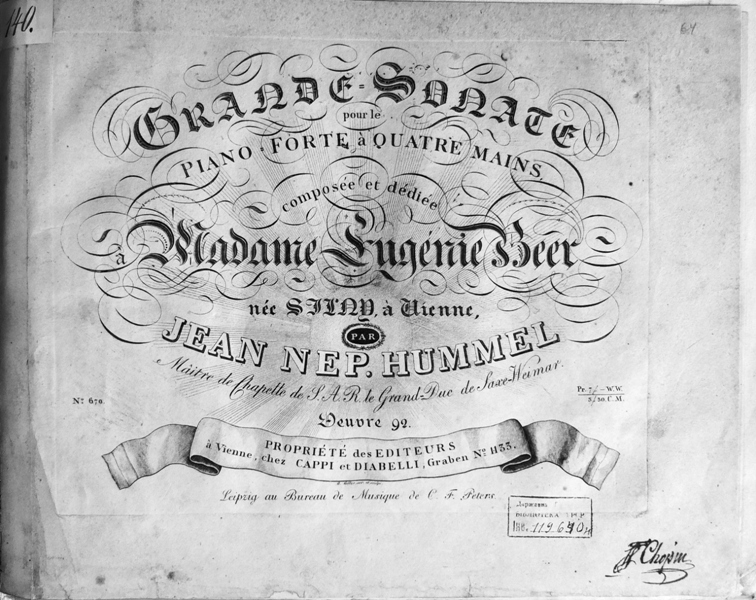 140.
64
GRANDE-SONATE
pour le
PIANO-FORTE à QUATRE MAINS,
composée et dédiée
à Madame Eugénie Beer
née SILNY, à Vienne,
PAR
JEAN NEP. HUMMEL
Maitre de Chapelle de S.A.R. le Grand-Duc de Saxe-Weimar.
Nº 670.
Oeuvre 92.
PROPRIÉTÉ des EDITEURS
à Vienne, chez CAPPI et DIABELLI, Graben Nº 1133.
Leipzig au Bureau de Musique de C. F. Peters.
Інв. 119640
F Chopin